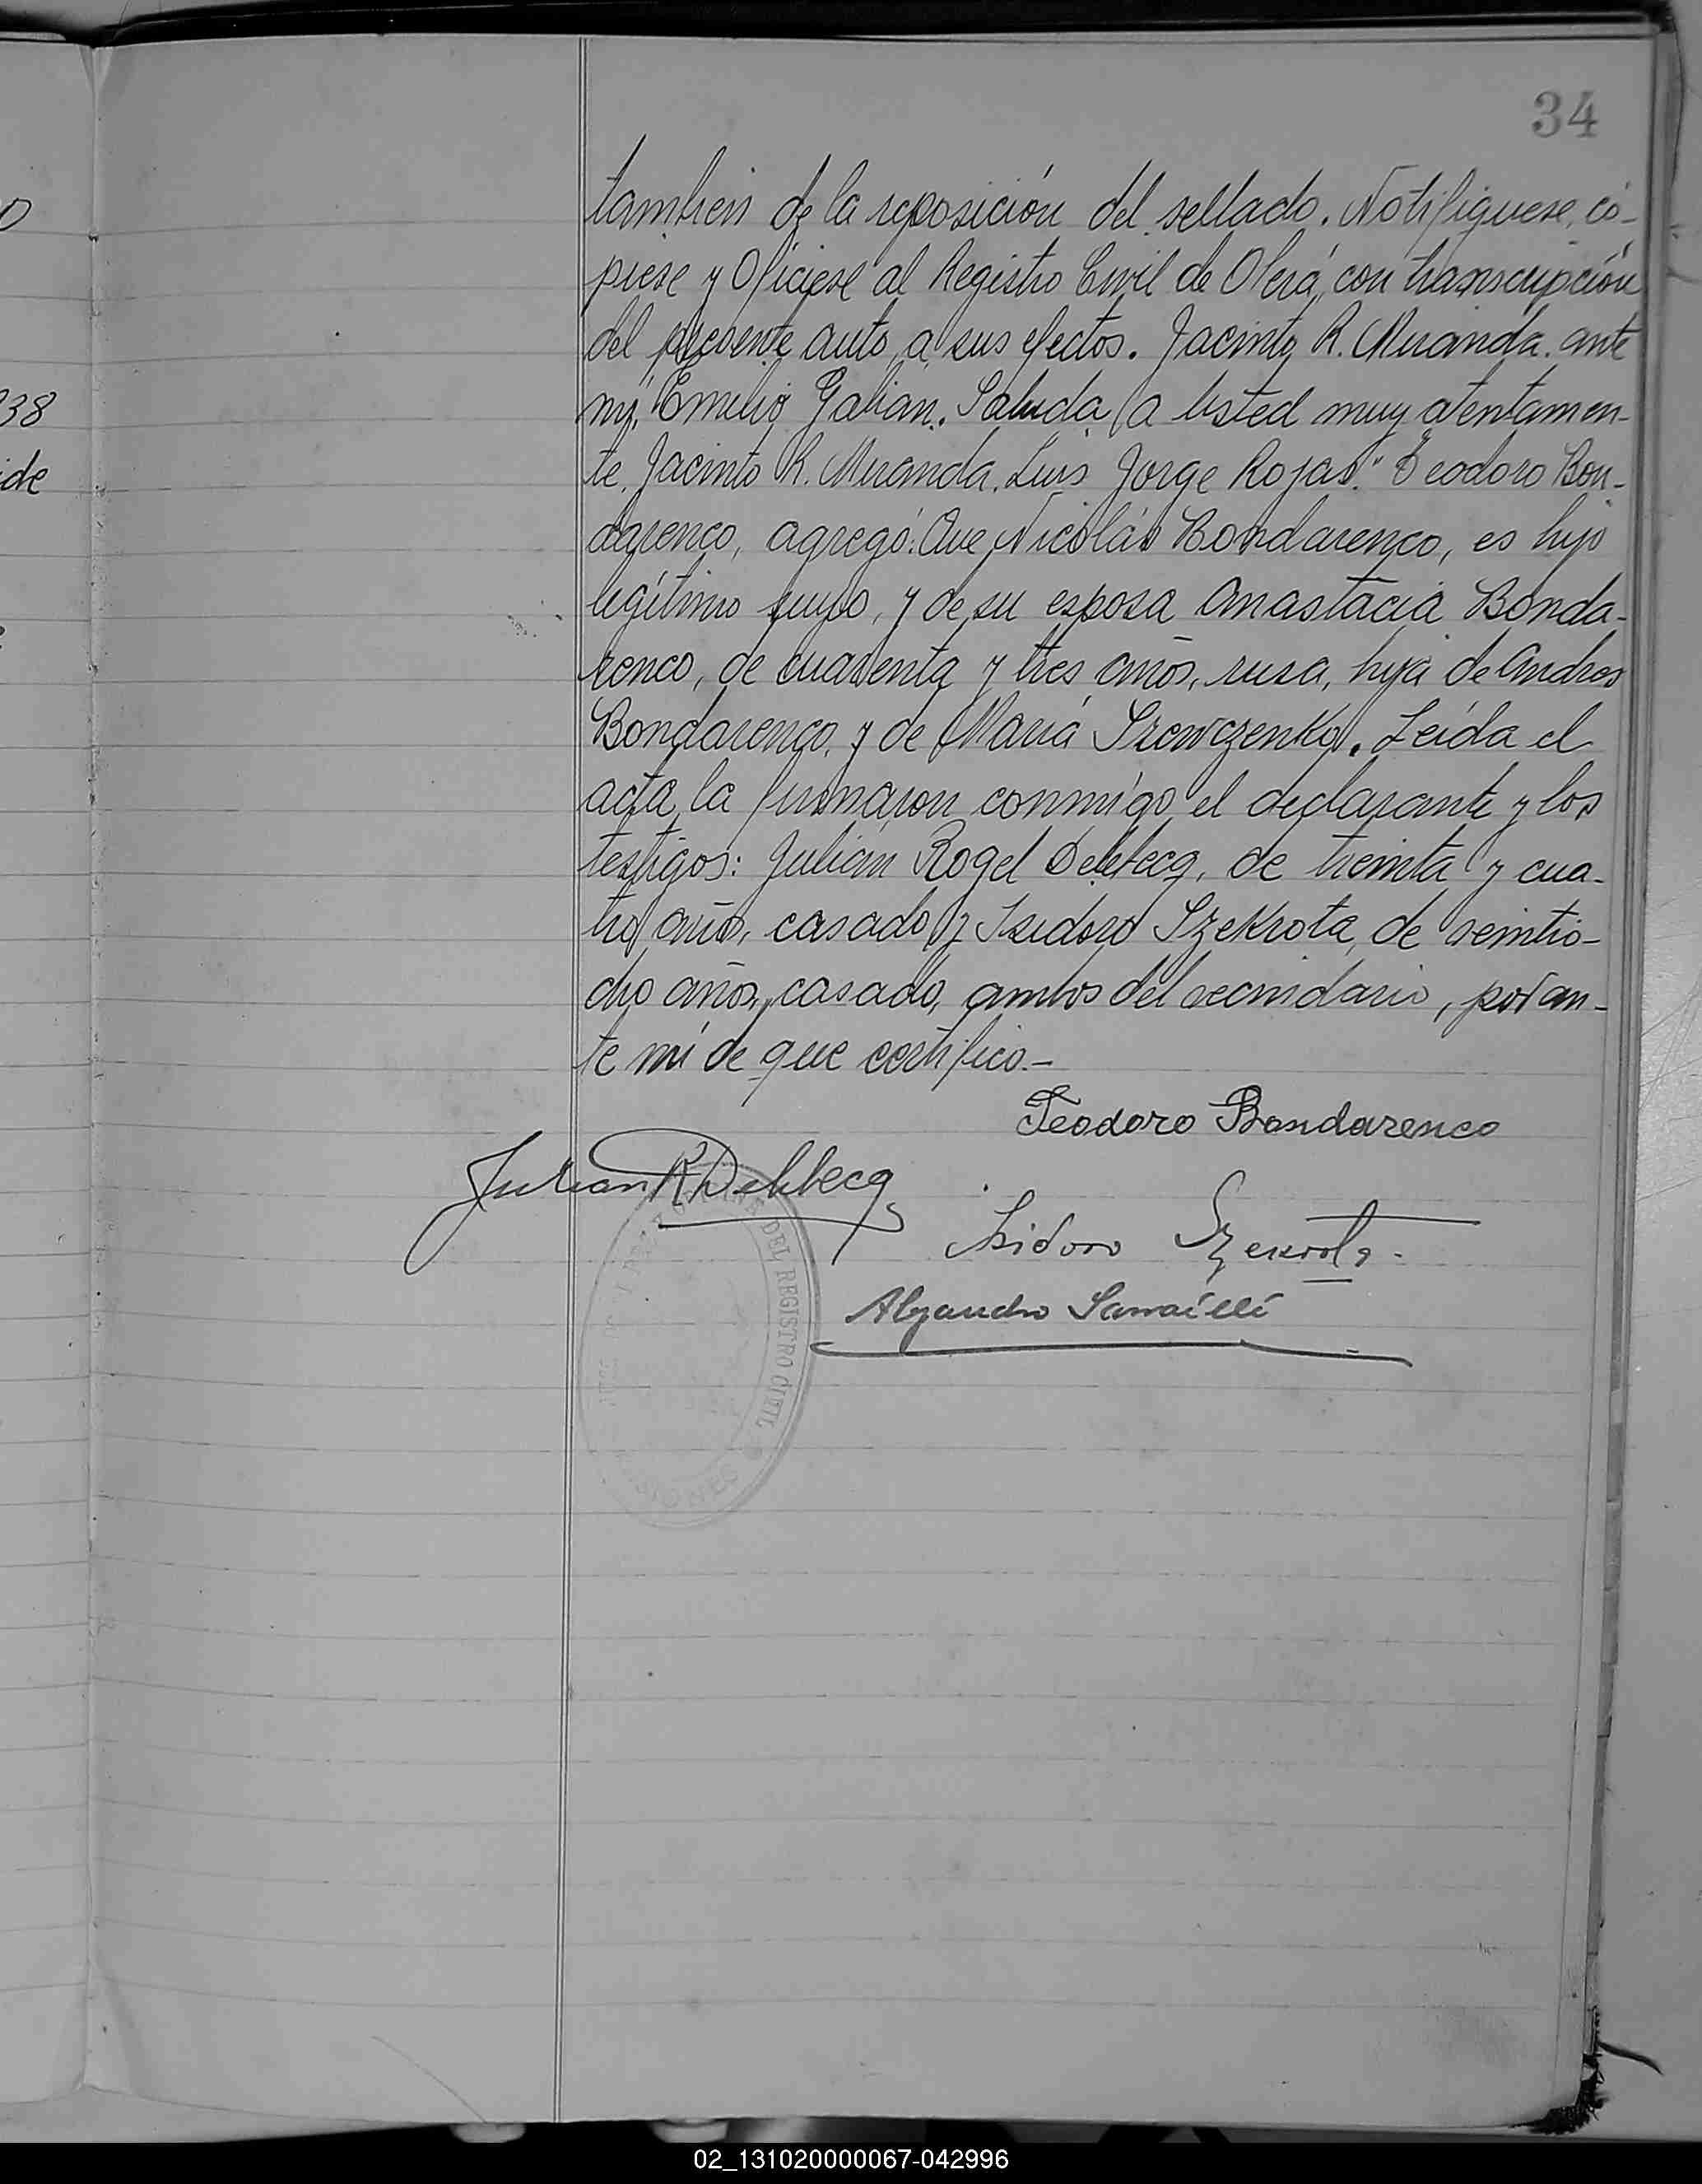 34
o
38
ide
tambien de la reposición del sellado. Notifíquese, có-
piese y Oficiese al Registro Civil de Oberá, con transcripción
del presente auto a sus efectos. Jacinto R. Miranda. ante
mi, Emilio Galian. Saluda a Usted muy atentamen-
te. Jacinto R. Miranda. Luis Jorge Rojas." Teodoro Bon-
darenco, agregó: Que Nicolás Bondarenco, es hijo
legítimo suyo, y de su esposa Anastacia Bonda-
renco, de cuarenta y tres años, rusa, hija de Andres
Bondarenco, y de María Szewczenko. Leída el
acta, la firmaron conmigo el declarante y los
testigos: Julián Rogel Delbecq, de treinta y cua-
tro años, casado y Isidoro Szekrota, de veintio-
cho años, casado, ambos del vecindario, por an-
te mí de que certifico.-
Teodoro Bondarenco
Julian R Delbecq
Isidoro Szekrota.
Alejandro
DEL REGISTRO CIVIL
02_131020000067-042996